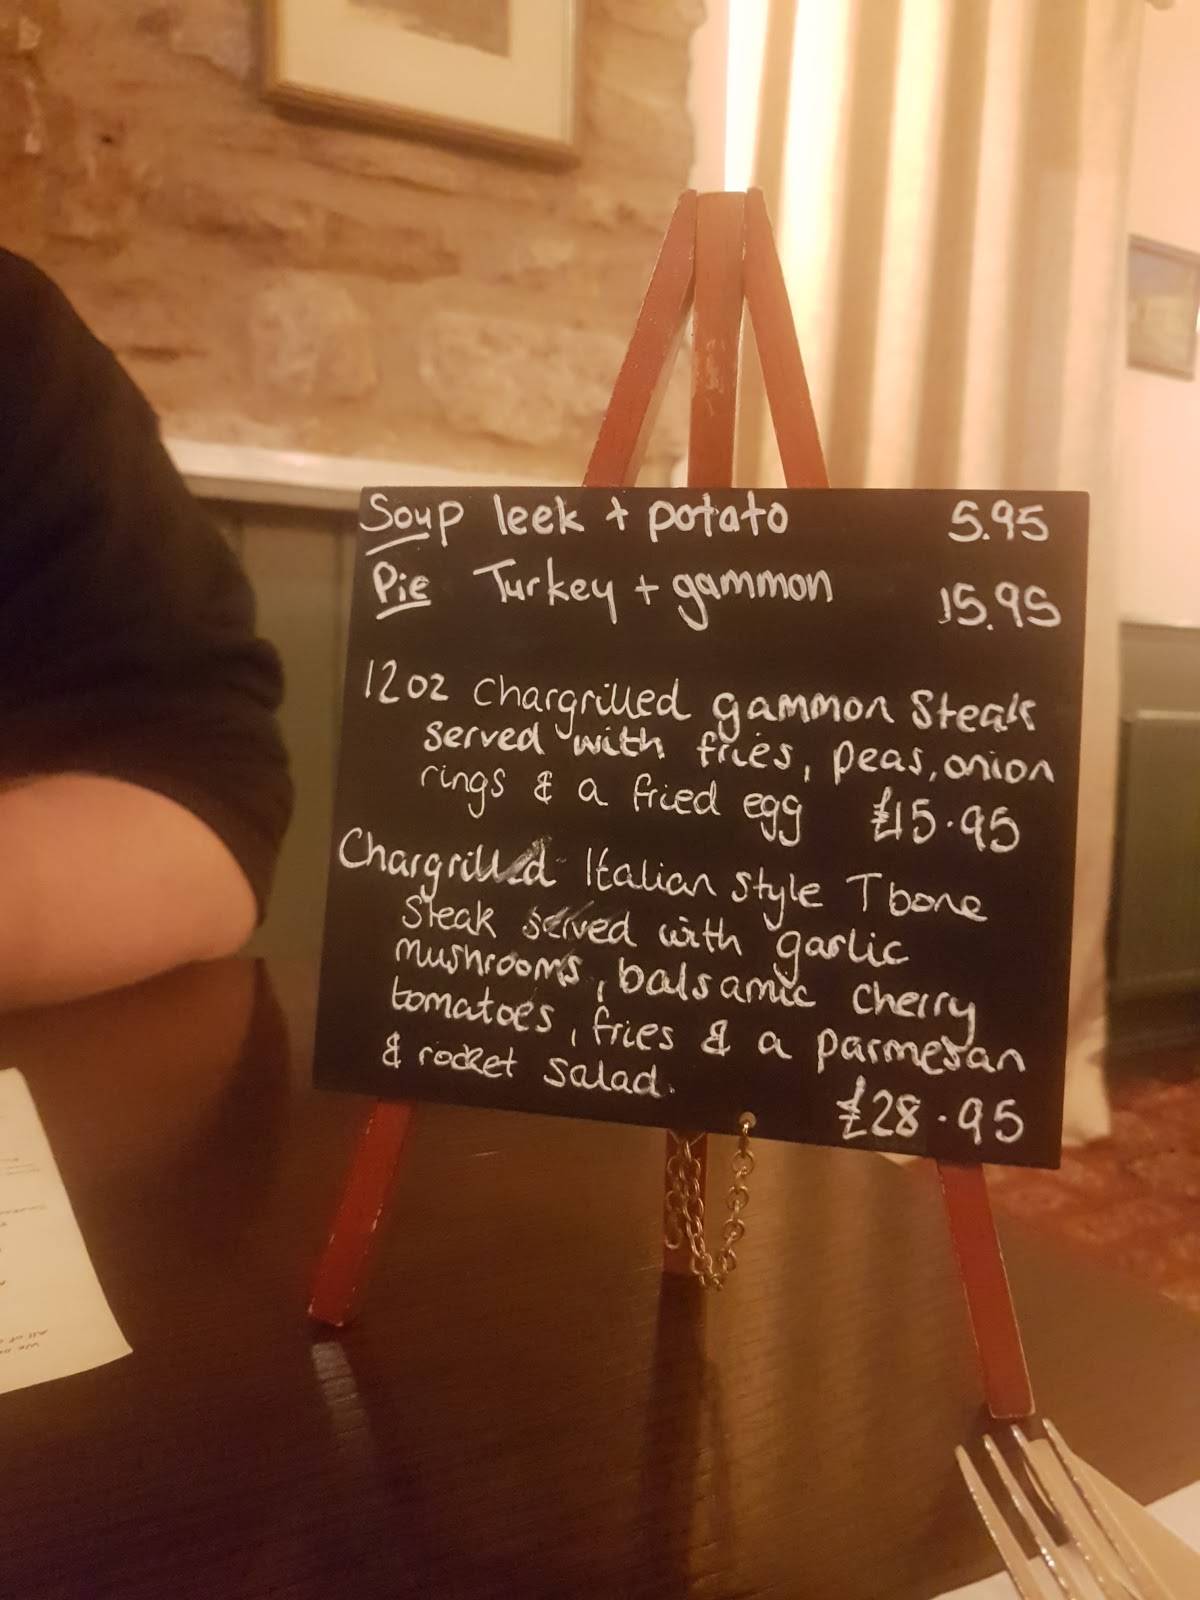 Soup leek + potato 5.95
Pie Turkey + gammon 15.95
12oz chargrilled gammon Steak
served with fries, peas, onion
rings & a fried egg £15.95
Chargrilled Italian style T bone
Steak served with garlic
mushrooms, balsamic cherry
tomatoes, fries & a parmesan
& rocket salad. £28.95